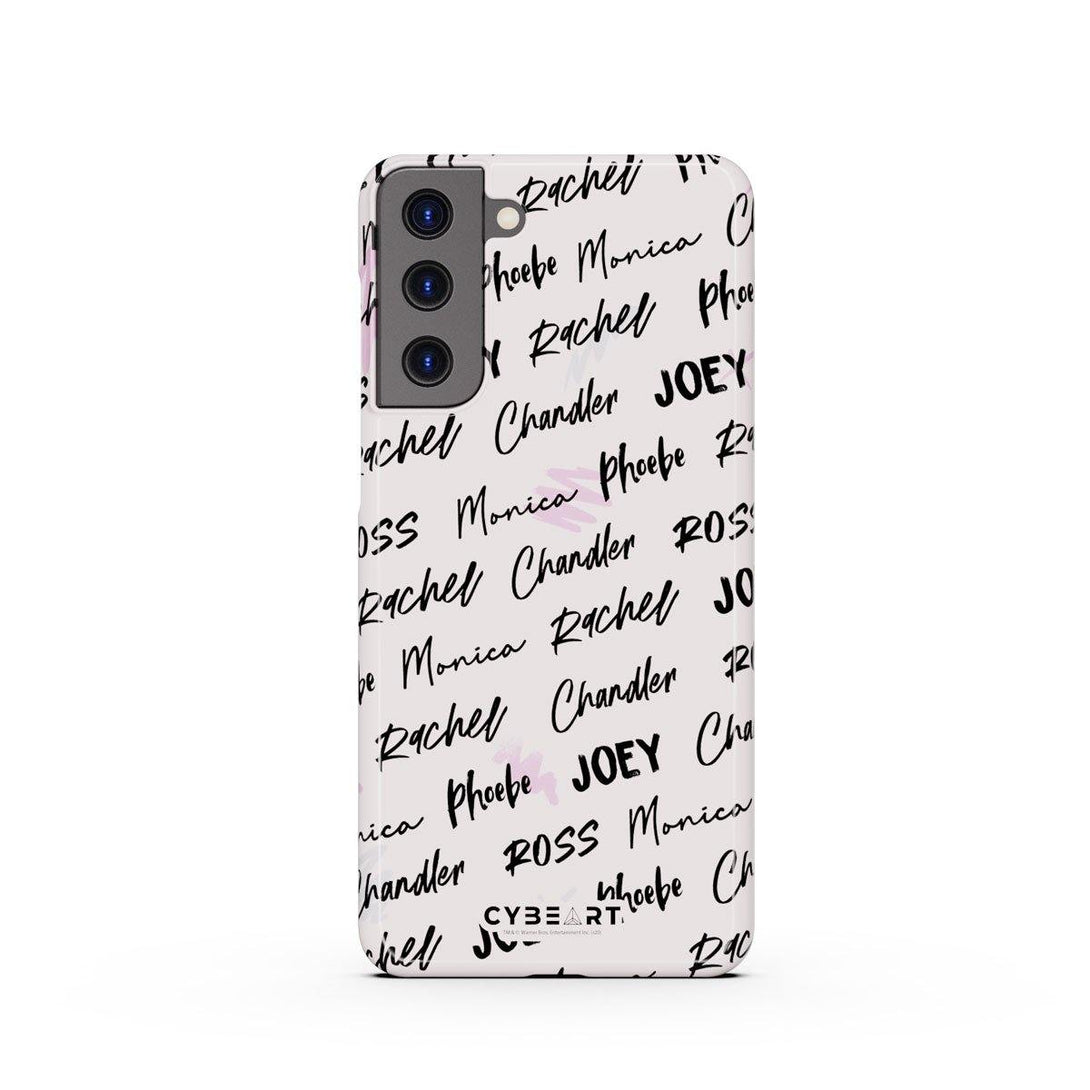 Rachel Ph
Phoebe Monica C
Y Rachel Phoe
Rachel Chandler JOEY
OSS Monica Phoebe Ra
Rachel Chandler ROSS
be Monica Rachel JO
Rachel Chandler RO
nica Phoebe JOEY Cha
Chandler ROSS Monica
Phoebe Ch
CYBEART
TM & © Warner Bros. Entertainment Inc. (s20)
chel JO Rac